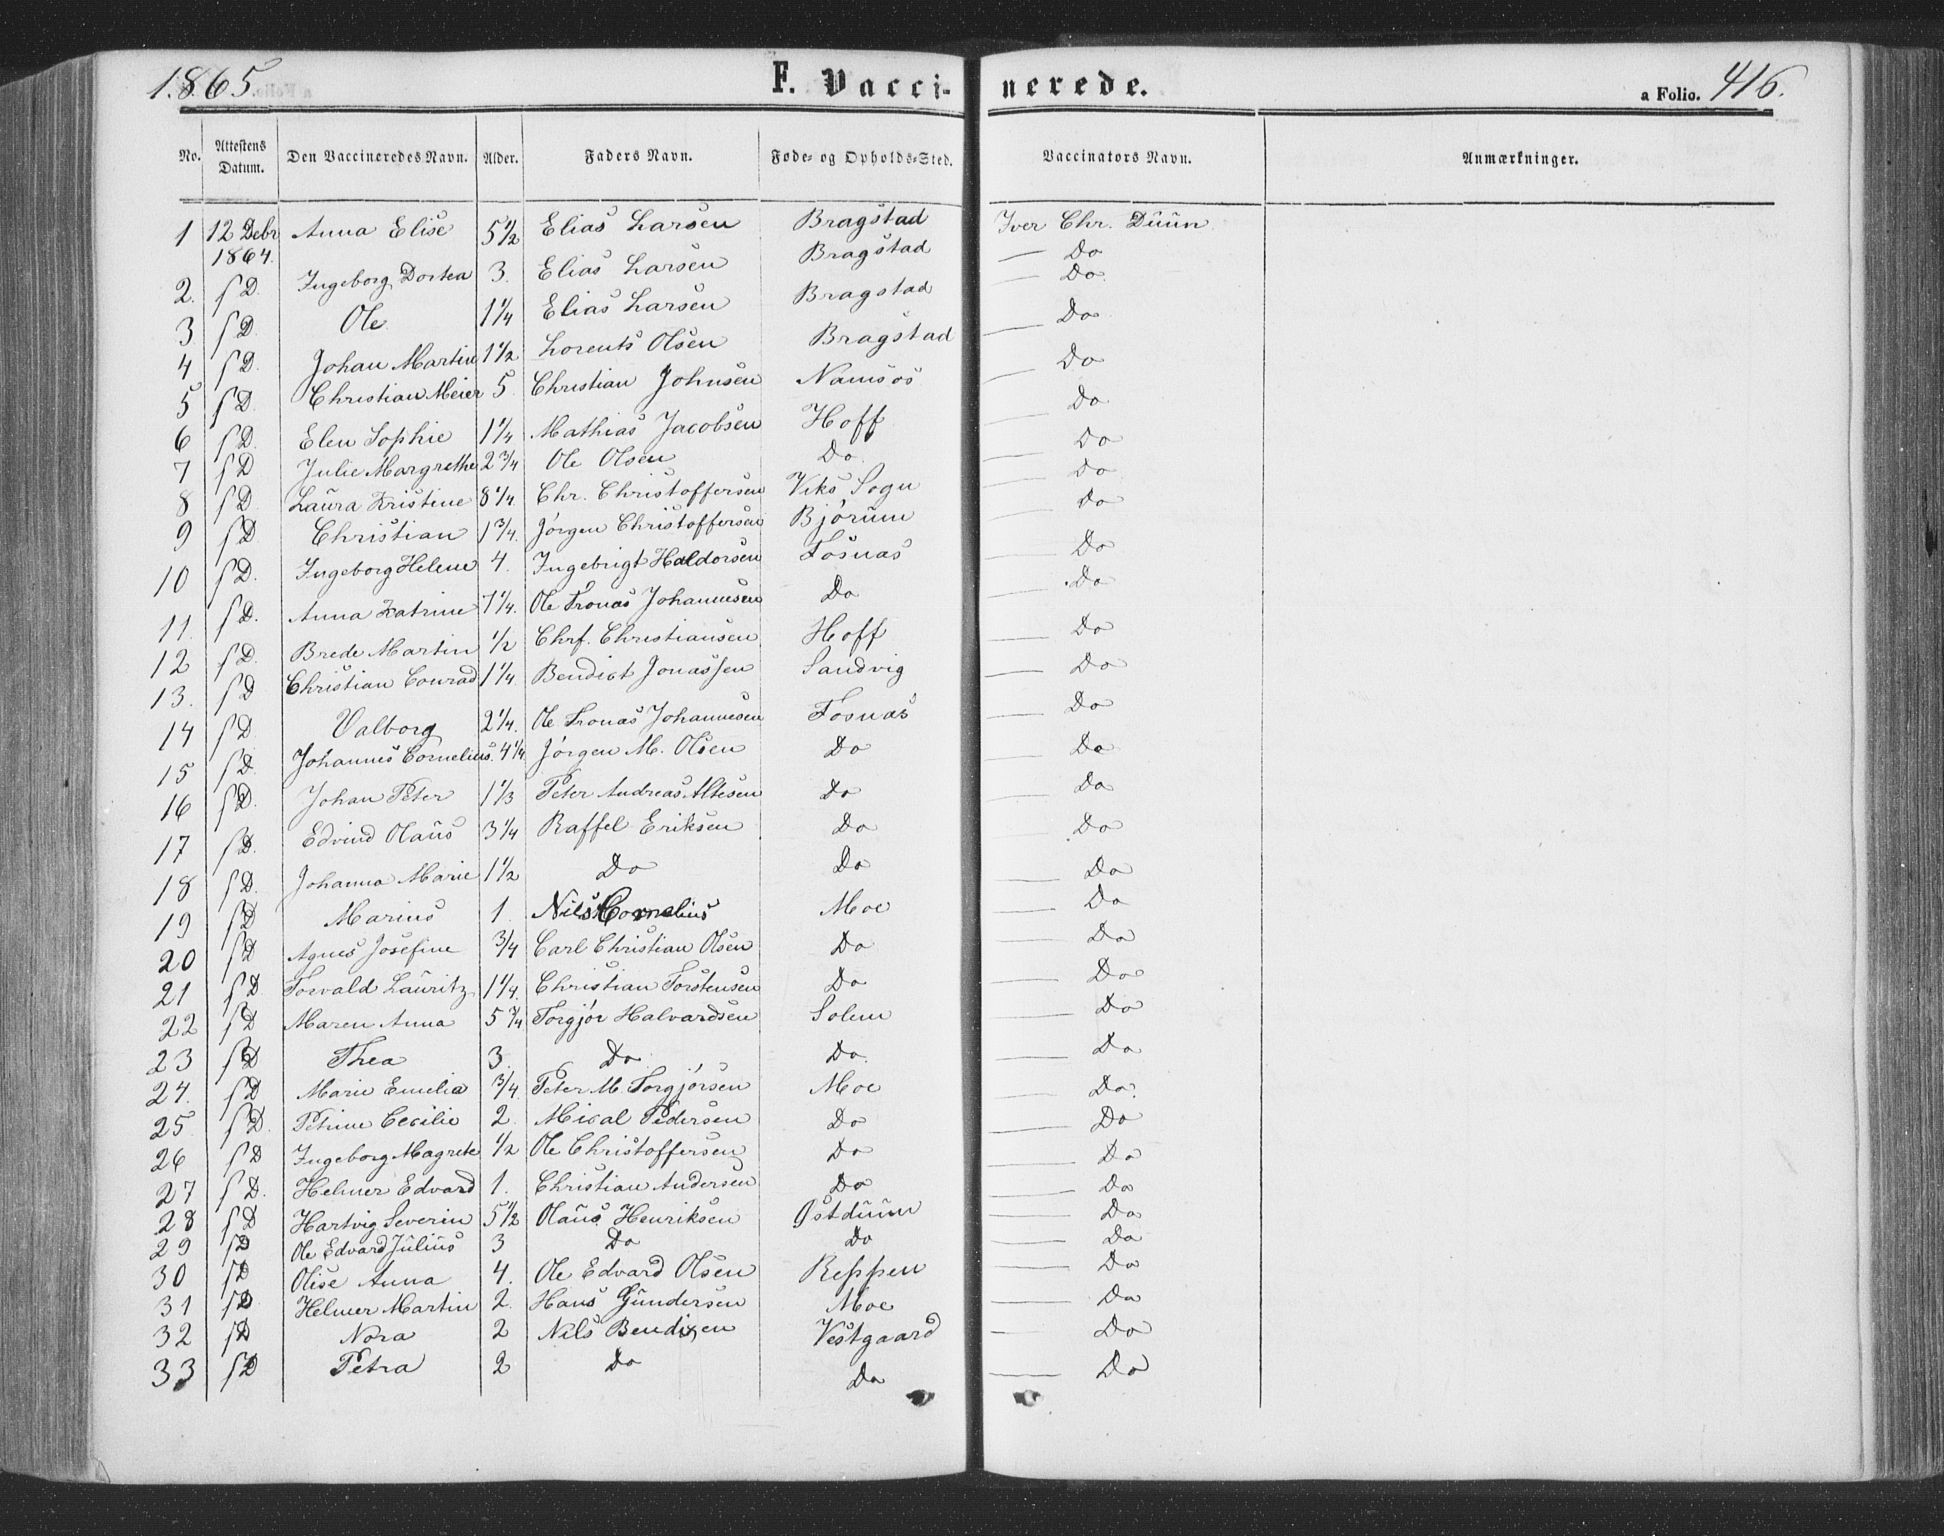 1865. F. Vacci- nerede. a Folio. 416.
No. Attestens Datum. Den Vaccineredes Navn. Alder. Faders Navn. Føde- og Opholds-Sted. Vaccinators Navn. Anmærkninger.
1 12 Debr 1864. Anna Elise 5 1/2 Elias Larsen Bragstad Iver Chr. Duun
2. s D. Ingeborg Dortea 3. Elias Larsen Bragstad — Do
3 s D. Ole 1 1/4 Elias Larsen Bragstad — Do
4 s D. Johan Martin 1 1/2 Lorents Olsen Bragstad — Do
5 s D. Christian Meier 5. Christian Johnsen Namsos — Do
6 s D. Elen Sophie 1 1/4 Mathias Jacobsen Hoff — Do
7 s D Julie Margrethe 2 3/4 Ole Olsen Do — Do
8 s D. Laura Kristine 8 1/4 Chr. Christoffersen Viks Sogn — Do
9 s D. Christian 1 3/4. Jörgen Christoffersen Bjørum — Do
10 s D. Ingeborg Helene 4. Ingebrigt Haldorsen Fosnas — Do
11. s D. Anna Katrine 7 1/4. Ole Tronas Johannesen Do — Do
12 s D. Brede Martin 1/2 Chrf. Christiansen Hoff — Do
13. s D Christian Conrad 1 1/4. Bendict Jonassen Sandvig — Do
14 s D. Valborg 2 1/4. Ole Tronas Johannesen Fosnas — Do
15 s D. Johannes Cornelius. 4 1/4 Jörgen M. Olsen Do — Do
16 s D. Johan Peter 1 1/3 Peter Andreas Altesen Do — Do
17 s D. Edvind Olaus 3 1/4 Raffel Eriksen Do — Do
18 s D. Johanna Marie 1 1/2 Do Do — Do
19 s D Marius 1. Nils Cornelius Moe — Do
20 s D Agnes Josefine 3/4 Carl Christian Olsen Do — Do
21 s D Torvald Lauritz 1 1/4. Christian Torstensen Do — Do
22 s D Maren Anna 5 3/4 Torgjör Halvardsen Solem — Do
23 s D Thea 3. Do Do. — Do
24. s D Marie Emelia 3/4. Peter M. Torgjørsen Moe — Do
25 s D. Petrine Cecilie 2. Mical Pedersen Do — Do
26 s D Ingeborg Magrete 1/2 Ole Christoffersen Do — Do
27 s D. Helmer Edvard 1. Christian Andersen Do — Do
28 s D Hartvig Severin 5 1/2 Olaus Henriksen Østduun — Do
29 s D Ole Edvard Julius 3 Do Do — Do
30 s D Olise Anna 4. Ole Edvard Olsen Reppen — Do
31 s D Helmer Martin 2. Hans Gundersen Moe — Do
32 s D Nora 2 Nils Bendixen Vestgaard — Do
33 s D Petra 2 Do Do — Do